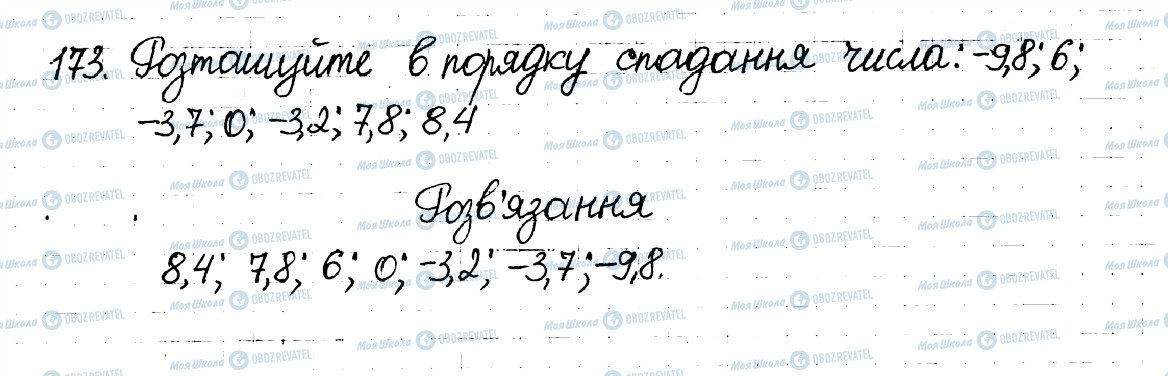 173. Розташуйте в порядку спадання числа: -9,8; 6;
-3,7; 0; -3,2; 7,8; 8,4
Розв'язання
8,4; 7,8; 6; 0; -3,2; -3,7; -9,8.